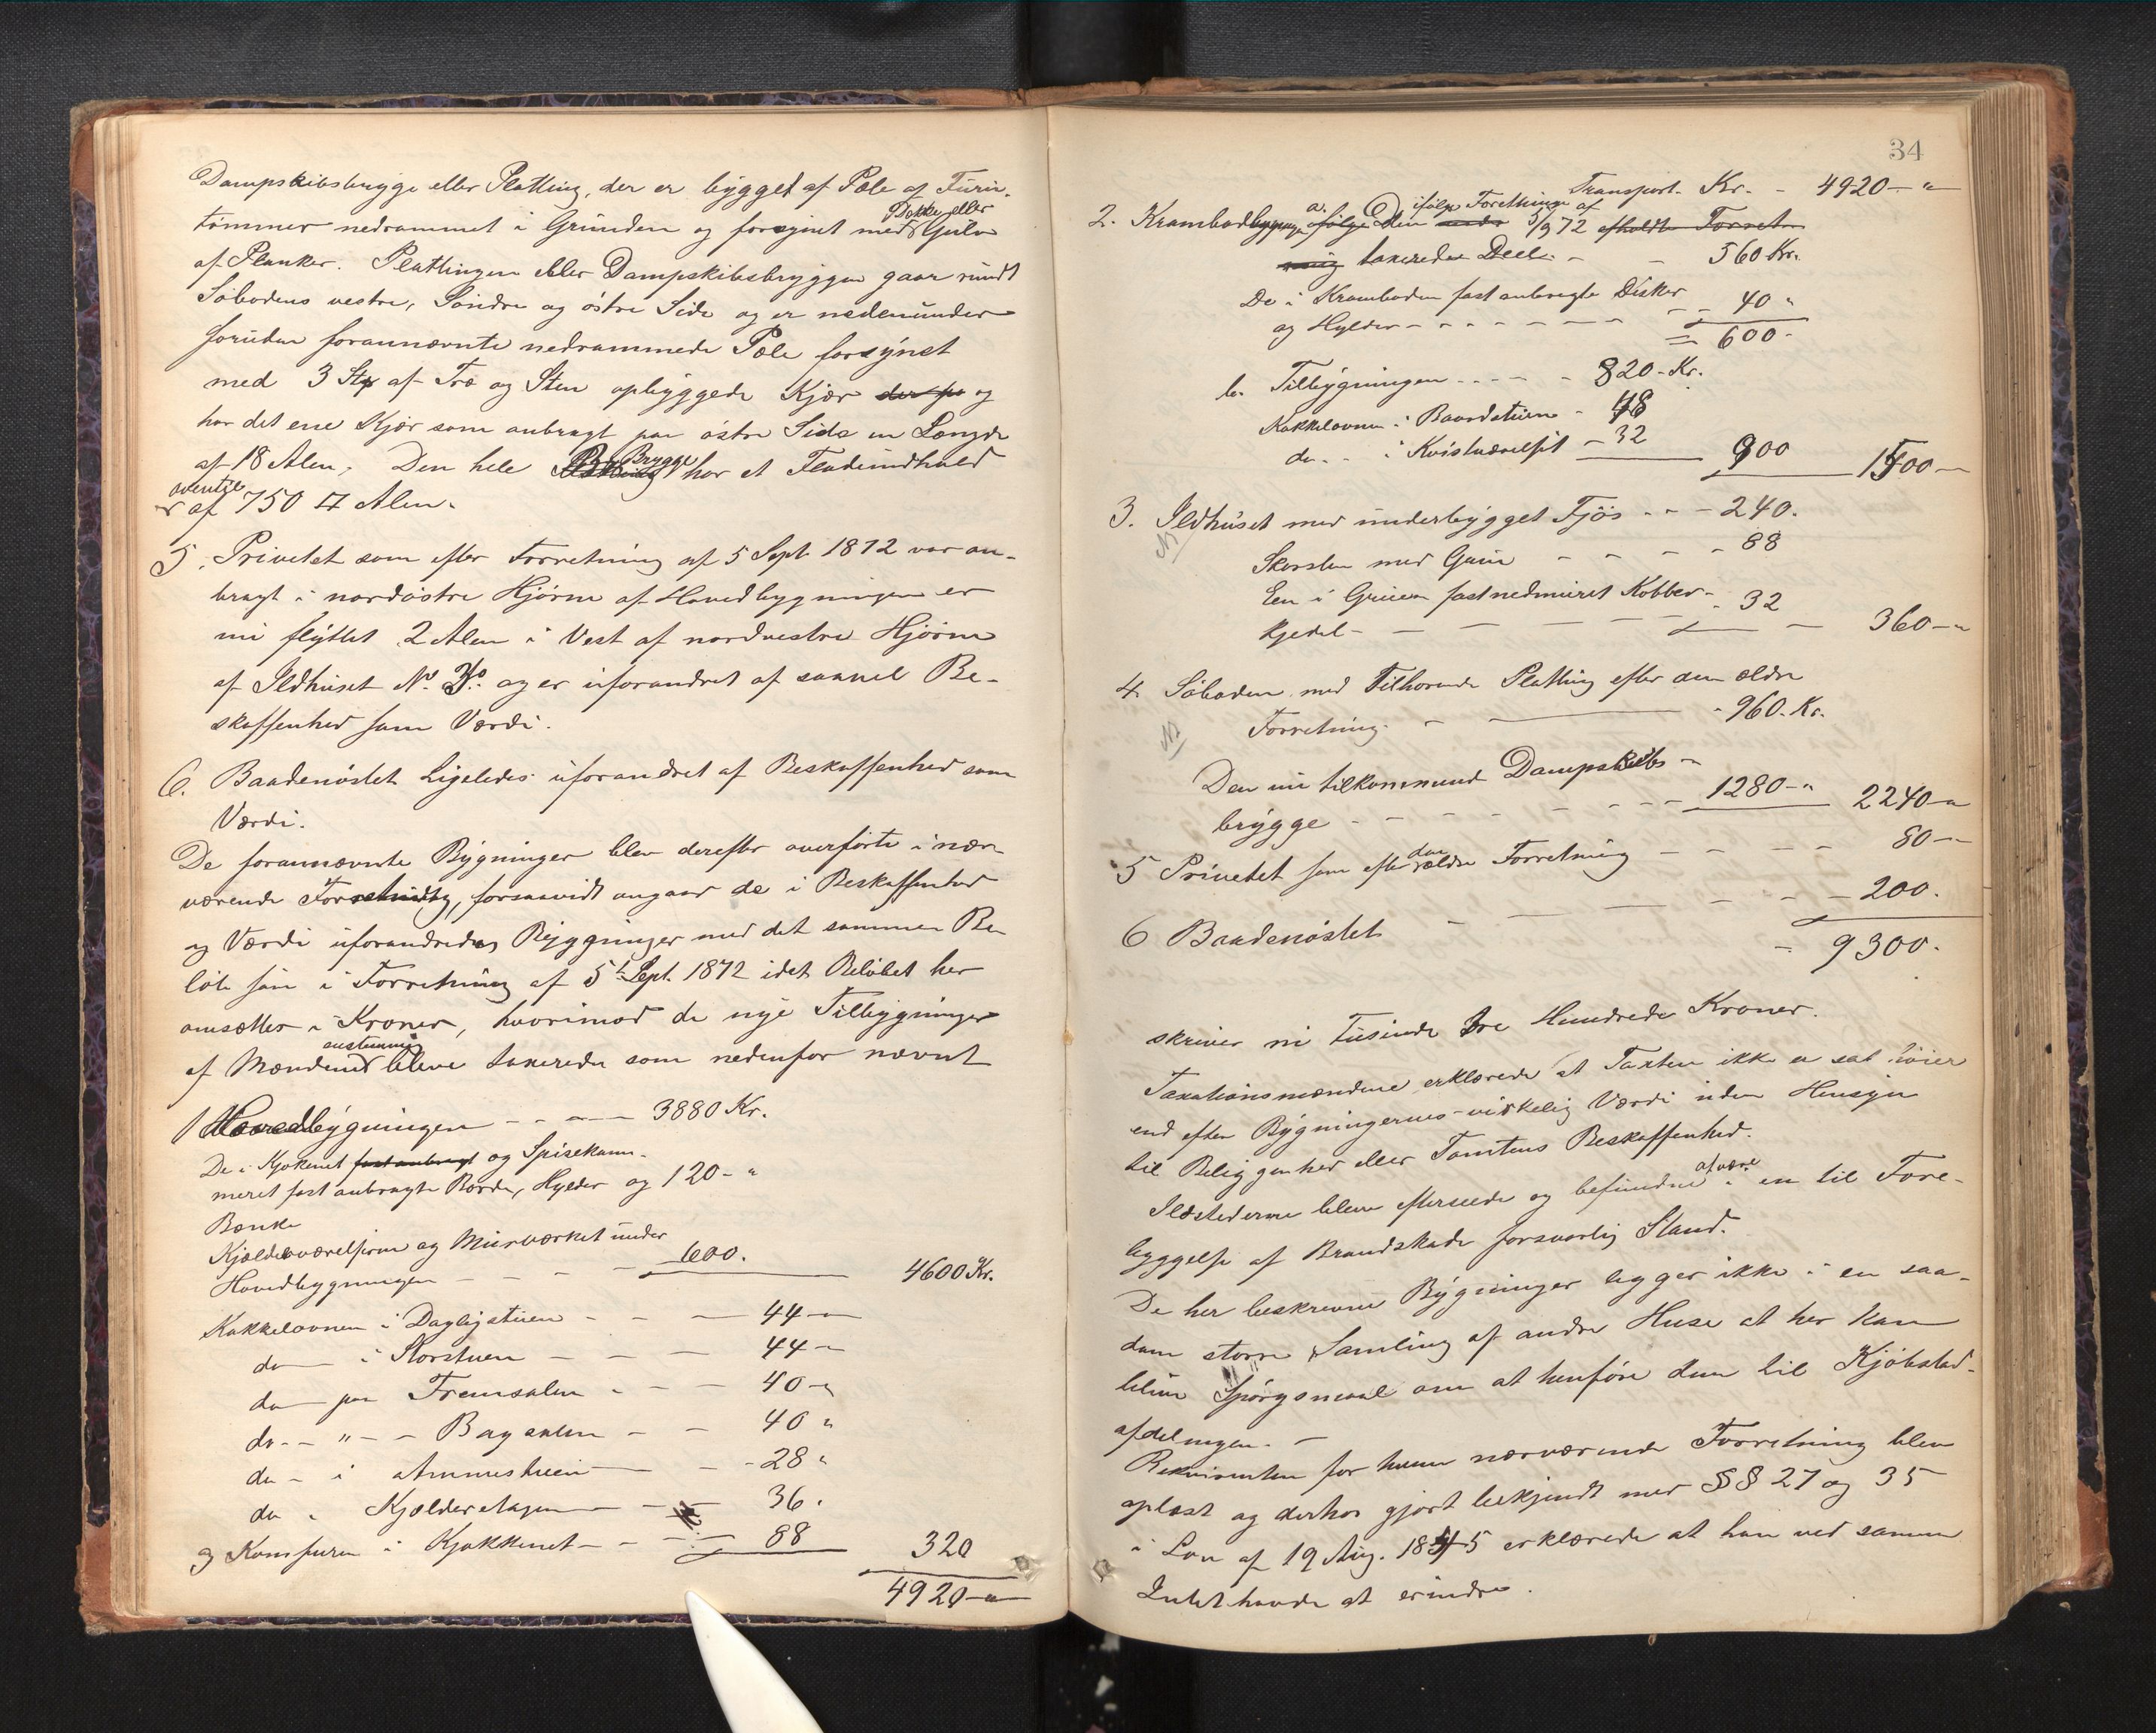 Dampskibsbrygge eller Platting, der er bygget af Pæle af Furu-
tömmer nedrammet i Grunden og forsynet med Dække eller Gulv
af Planker. Plattingen eller Dampskibsbryggen gaar rundt
Söbodens vestre, Söndre og östre Side og er nedenunder
foruden forannævnte nedrammede Pæle forsynet
med 3 Stkr af Træ og Sten opbyggede Kjær og
har det ene Kjær som anbragt paa östre Side en Længde
af 18 Alen, Den hele Brygge har et Fladeindhold
oventil
af 750 □ Alen.
5. Privetet som efter Forretning af 5 Sept. 1872 var an-
bragt i nordöstre Hjörne af Hovedbygningen er
nu flyttet 2 Alen i Vest af nordvestre Hjörne
af Ildhuset No. 3. og er uforandret af saavel Be-
skaffenhed som Værdi.
6. Baadenöstet Ligeledes uforandret af Beskaffenhed som
Værdi.
De forannævnte Bygninger blev derefter overförte i nær-
værende Forretning, forsaavidt angaar de i Beskaffenhed
og Værdi uforandrede Bygninger med det samme Be-
löb som i Forretning af 5te Sept. 1872 idet Belöbet her
omsættes i Kroner, hvorimod de nye Tilbygninger
af Mændene enstemmig bleve taxerede som nedenfor nævnt
1 Hovedbygningen - - - 3880 Kr.
De i Kjökenet fast anbragt og Spisekam-
meret fast anbragte Borde, Hylder og 120 - "
Bænke
Kjælderværelserne og Murværket under
Hovedbygningen - - - - 600. 4600 Kr.
Kakkelovnen i Dagligstuen - - - 44 - "
do - i Storstuen - - - 44 - "
do - paa Fremsalen - - - 40 - "
do - " - Bagsalen - - 40 "
do - i Ammestuen - - 28 "
do " Kjælderetagen - - - 36.
og Komfuren i Kjøkkenet - - - 88 320
4920 - "
34
Transport. Kr. - 4920 - "
2. Krambodbygningen a. Den ifölge Forretning af 5/9 72 afholdte Forret-
ning taxerede Deel. - - 560 Kr.
De i Kramboden fast anbragte Disker
og Hylder - - - - - - - - 40 "
= 600 -
b. Tilbygningen - - - - - 820 - Kr.
Kakkelovnen i Baardstuen - 48
do - - i Kvistværelset - 32 900 1500 -
3. Ildhuset med underbygget Fjös - - - 240.
Skorsten med Grue - - - - - 88
Een i Gruen fastnedmuret Kobber-
kjedel - - - - - - 32 - 360 - "
4. Söboden med Tilhørende Platting efter den ældre
Forretning. - - - 960. Kr.
Den nu tilkommende Dampskibs-
brygge - - - - - - - - 1280 - " 2240 - "
5 Privetet som efter den ældre Forretning - - - - 80 - "
6 Baadenöstet - - - - - - 200.
- 9300.
skriver ni tusinde tre Hundrede Kroner.
Taxationsmændene erklærede at Taxten ikke er sat höier
end efter Bygningernes virkelig Værdi uden Hensyn
til Beliggenhed eller Tomtens Beskaffenhed.
Ildstederne bleve efterseede og befundne at være i en til Fore-
byggelse af Brandskade forsvarlig Stand.
De her beskrevne Bygninger ligger ikke i en saa-
dan större Samling af andre Huse at her kan
blive Spörgsmaal om at henföre dem til Kjöbstad-
afdelingen. -
Rekvirenten for hvem nærværende Forretning blev
oplæst og derhos gjort bekjendt med §§ 27 og 35
i Lov af 19 Aug. 1845 erklærede at han ved samme
Intet havde at erindre.